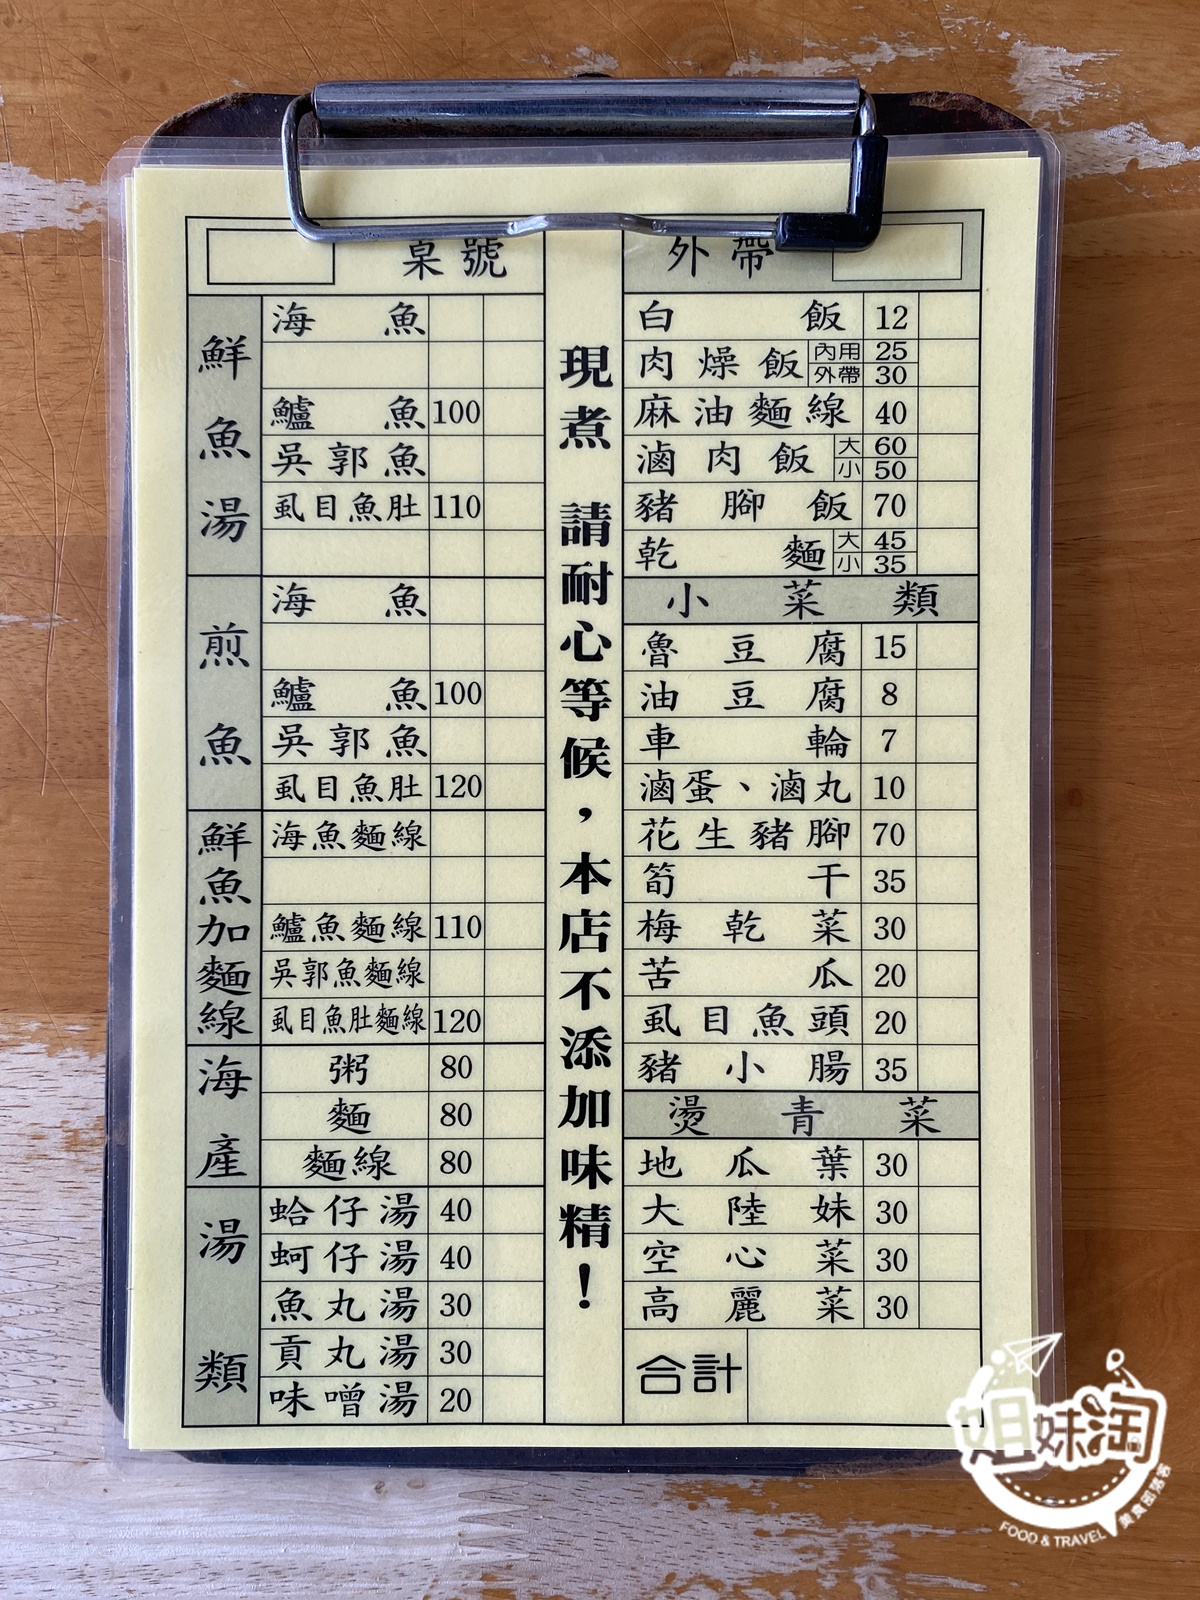 桌號
鮮魚湯
海魚
鱸魚 100
吳郭魚
虱目魚肚 110
煎魚
海魚
鱸魚 100
吳郭魚
虱目魚肚 120
鮮魚加麵線
海魚麵線
鱸魚麵線 110
吳郭魚麵線
虱目魚肚麵線 120
海產
粥 80
麵 80
麵線 80
湯類
蛤仔湯 40
蚵仔湯 40
魚丸湯 30
貢丸湯 30
味噌湯 20
現煮 請耐心等候,本店不添加味精!
外帶
白飯 12
肉燥飯 內用 25
外帶 30
麻油麵線 40
滷肉飯 大 60
小 50
豬腳飯 70
乾麵 大 45
小 35
小菜類
魯豆腐 15
油豆腐 8
車輪 7
滷蛋、滷丸 10
花生豬腳 70
筍干 35
梅乾菜 30
苦瓜 20
虱目魚頭 20
豬小腸 35
燙青菜
地瓜葉 30
大陸妹 30
空心菜 30
高麗菜 30
合計
姐妹淘
FOOD & TRAVEL 美食部落客